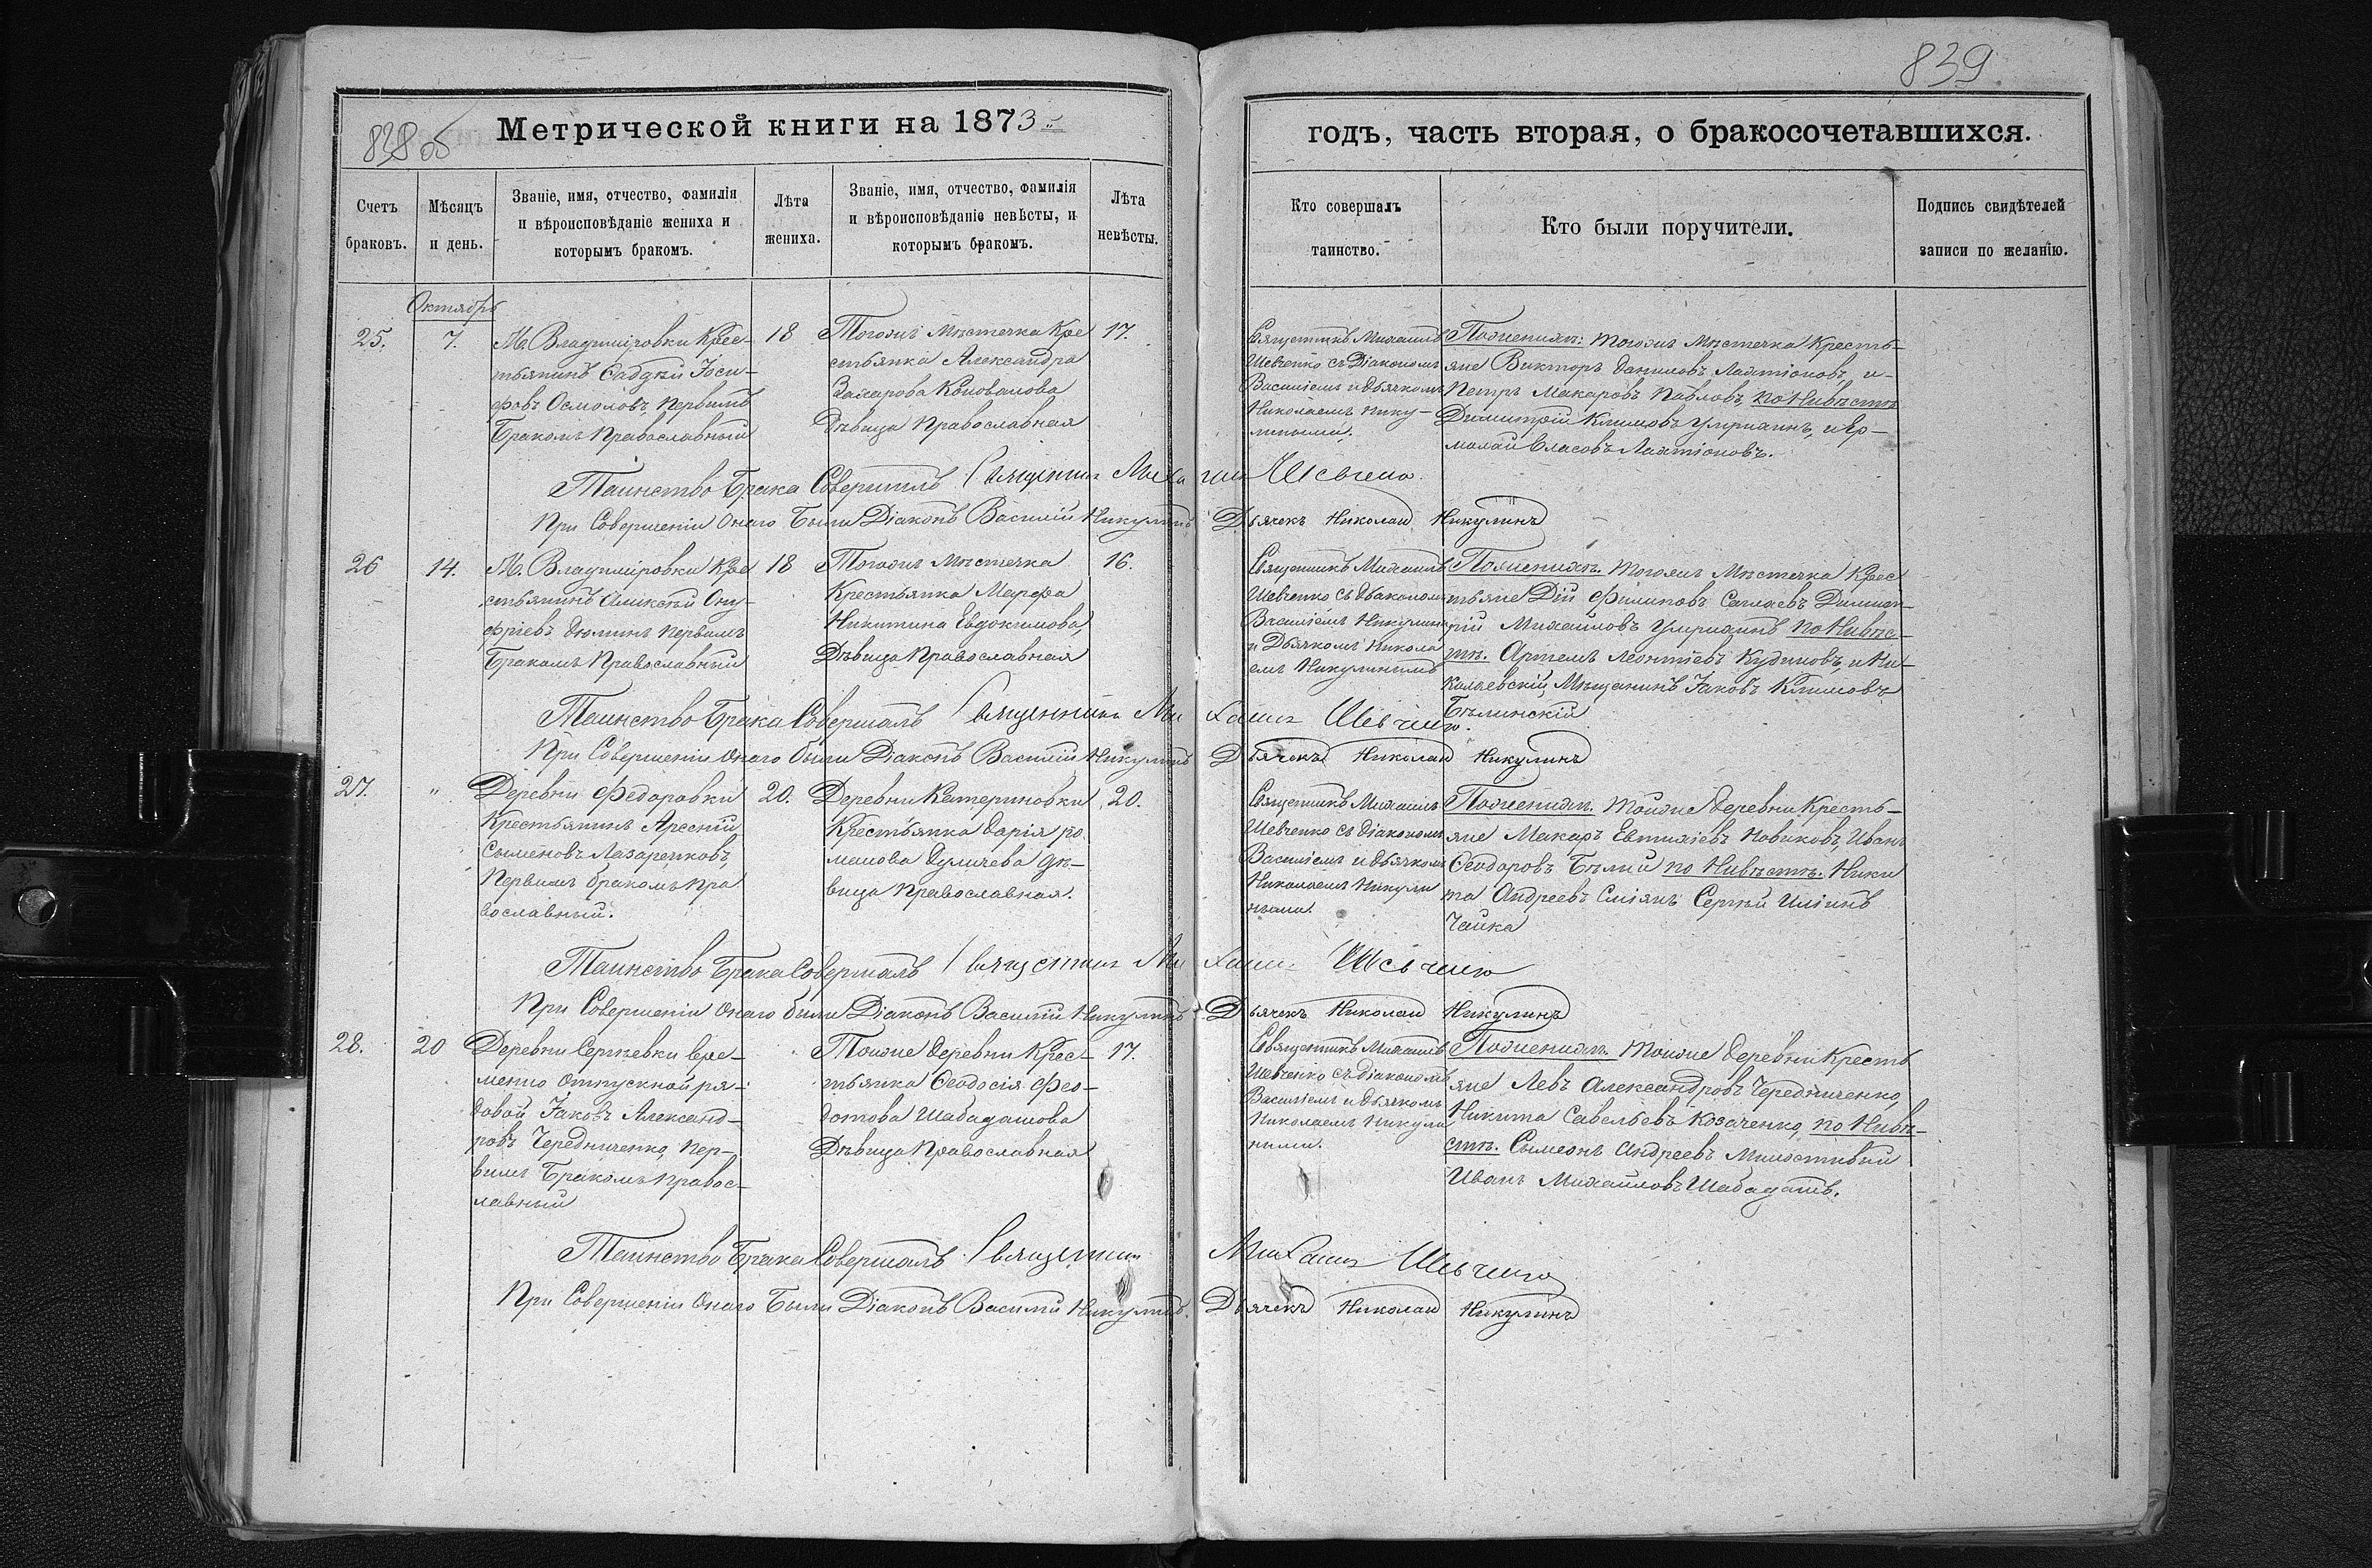 838 об
Метрической книги на 1873
Счетъ браковъ.
Мѣсяцъ и день.
Званіе, имя, отчество, фамилія
и вѣроисповѣданіе жениха и
которымъ бракомъ.
Лѣта жениха.
Званіе, имя, отчество, фамилія
и вѣроисповѣданіе невѣсты, и
которымъ бракомъ.
Лѣта невѣсты.
839
годъ, часть вторая, о бракосочетавшихся.
Кто совершалъ
таинство.
Кто были поручители.
Подпись свидѣтелей
записи по желанію.
Октябрь
25.
7.
М. Владиміровки Крес-
тьянинъ Іоси-
фовъ Осмоловъ, первымъ
бракомъ Православный
18
Тогожъ Мѣстечка Кре
стьянка Александра
Захарова Коновалова
Дѣвица Православная
17.
Священникъ Михаилъ
Шевченко съ Діакономъ
Василіемъ и Дьячкомъ
Николаемъ Нику-
лиными.
По жениху: тогожъ Мѣстечка Кресть-
яне Викторъ Даниловъ Лактіоновъ, и
Петръ Макаровъ Павловъ, по Нивѣстѣ
Димитрій Климовъ и Ер-
молай Власовъ Лактіоновъ.
Таинство Брака Совершалъ Священникъ Михаилъ Шевченко
При Совершеніи Онаго Были Діаконъ Василій Никулинъ Дьячекъ Николай Никулинъ
26
14.
М. Владиміровки Кре
стьянинъ Алексѣй Ону-
фріевъ Дюминъ первымъ
бракомъ Православный
18
Тогожъ Мѣстечка
Крестьянка Марфа
Никитина Евдокимова,
Дѣвица Православная
16.
Священникъ Михаилъ
Шевченко съ Діакономъ
Василіемъ Никулин
и Дьячкомъ Никола
емъ Никулинымъ
По жениху. тогожъ Мѣстечка Крес
тьяне Дій Филиповъ Димит-
рій Михайловъ по Нивѣс-
тѣ. Артемъ Леонтіевъ Кудиновъ, и Ни-
колаевскій Мѣщанинъ Іаковъ Климовъ
Бѣлинскій
Таинство Брака Совершалъ Священникъ Михаилъ Шевченко.
При Совершеніи Онаго были Діаконъ Василій Никулинъ Дьячекъ Николай Никулинъ
27.
"
Деревни Федоровки
Крестьянинъ Арсеній
Сѵмеоновъ Лазаренковъ,
Первымъ бракомъ Пра
вославный.
20.
Деревни Катериновки
Крестьянка Дарія Ро
манова Дѣ-
вица Православная.
20.
Священникъ Михаилъ
Шевченко съ Діакономъ
Василіемъ и Дьячкомъ
Николаемъ Никули
ными.
По жениху. тойже Деревни Кресть-
яне Макаръ Евтихіевъ Новиковъ, Иванъ
Ѳеодоровъ Бѣлый по Нивѣстѣ. Ники
та Андреевъ Сергѣй Иліинъ
Чайка
Таинство Брака Совершалъ Священникъ Михаилъ Шевченко
При Совершеніи Онаго были Діаконъ Василій Никулинъ Дьячекъ Николай Никулинъ
28.
20
Деревни Сергѣевки Вре-
менно Отпускной ря-
довой Іаковъ Александ-
ровъ Чередниченко, пер-
вымъ Бракомъ Правос-
лавный
Тойже Деревни Крес-
тьянка Ѳеодосія Фео-
дотова Шабадашова
Дѣвица Православная
17.
Священникъ Михаилъ
Шевченко съ Діакономъ
Василіемъ и Дьячкомъ
Николаемъ Никули
ными.
По жениху. тойже Деревни Кресть
яне Левъ Александровъ Чередниченко,
Никита Савельевъ Козаченко, по Нивѣ-
стѣ. Сѵмеонъ Андреевъ Милостивый
Иванъ Михайловъ Шабадашъ.
Таинство Брака Совершалъ Священникъ Михаилъ Шевченко
При Совершеніи Онаго Были Діаконъ Василій Никулинъ. Дьячекъ Николай Никулинъ